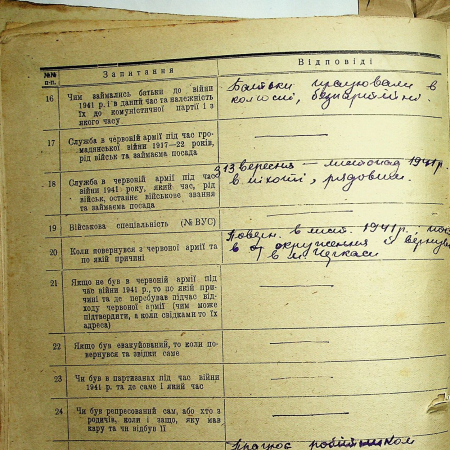 №№ п-п. Запитання Відповіді
16 Чим займались батьки до війни
1941 р. і в даний час та належність
їх до комуністичної партії і з
якого часу
Батьки працювали в
колгоспі, безпартійні.
17 Служба в червоній армії під час гро-
мадянської війни 1917—22 років,
рід військ та займаєма посада
18 Служба в червоній армії під час
війни 1941 року, який час, рід
військ, останнє військове звання
та займаєма посада
З 13 вересня — листопад 1941 р.
в піхоті, рядовим.
19 Військова спеціальність (№ ВУС)
20 Коли повернувся з червоної армії та
по якій причині
в лист. 1941 р.
в окруження і
в м. Черкаси
21 Якщо не був в червоній армії під
час війни 1941 р., то по якій при-
чині та де перебував підчас від-
ходу червоної армії (чим може
підтвердити, а коли свідками то їх
адреса)
22 Якщо був евакуйований, то коли по-
вернувся та звідки саме
23 Чи був в партизанах під час війни
1941 р. та де саме і який час
24 Чи був репресований сам, або хто з
родичів, коли і защо, яку мав
кару та чи відбув її